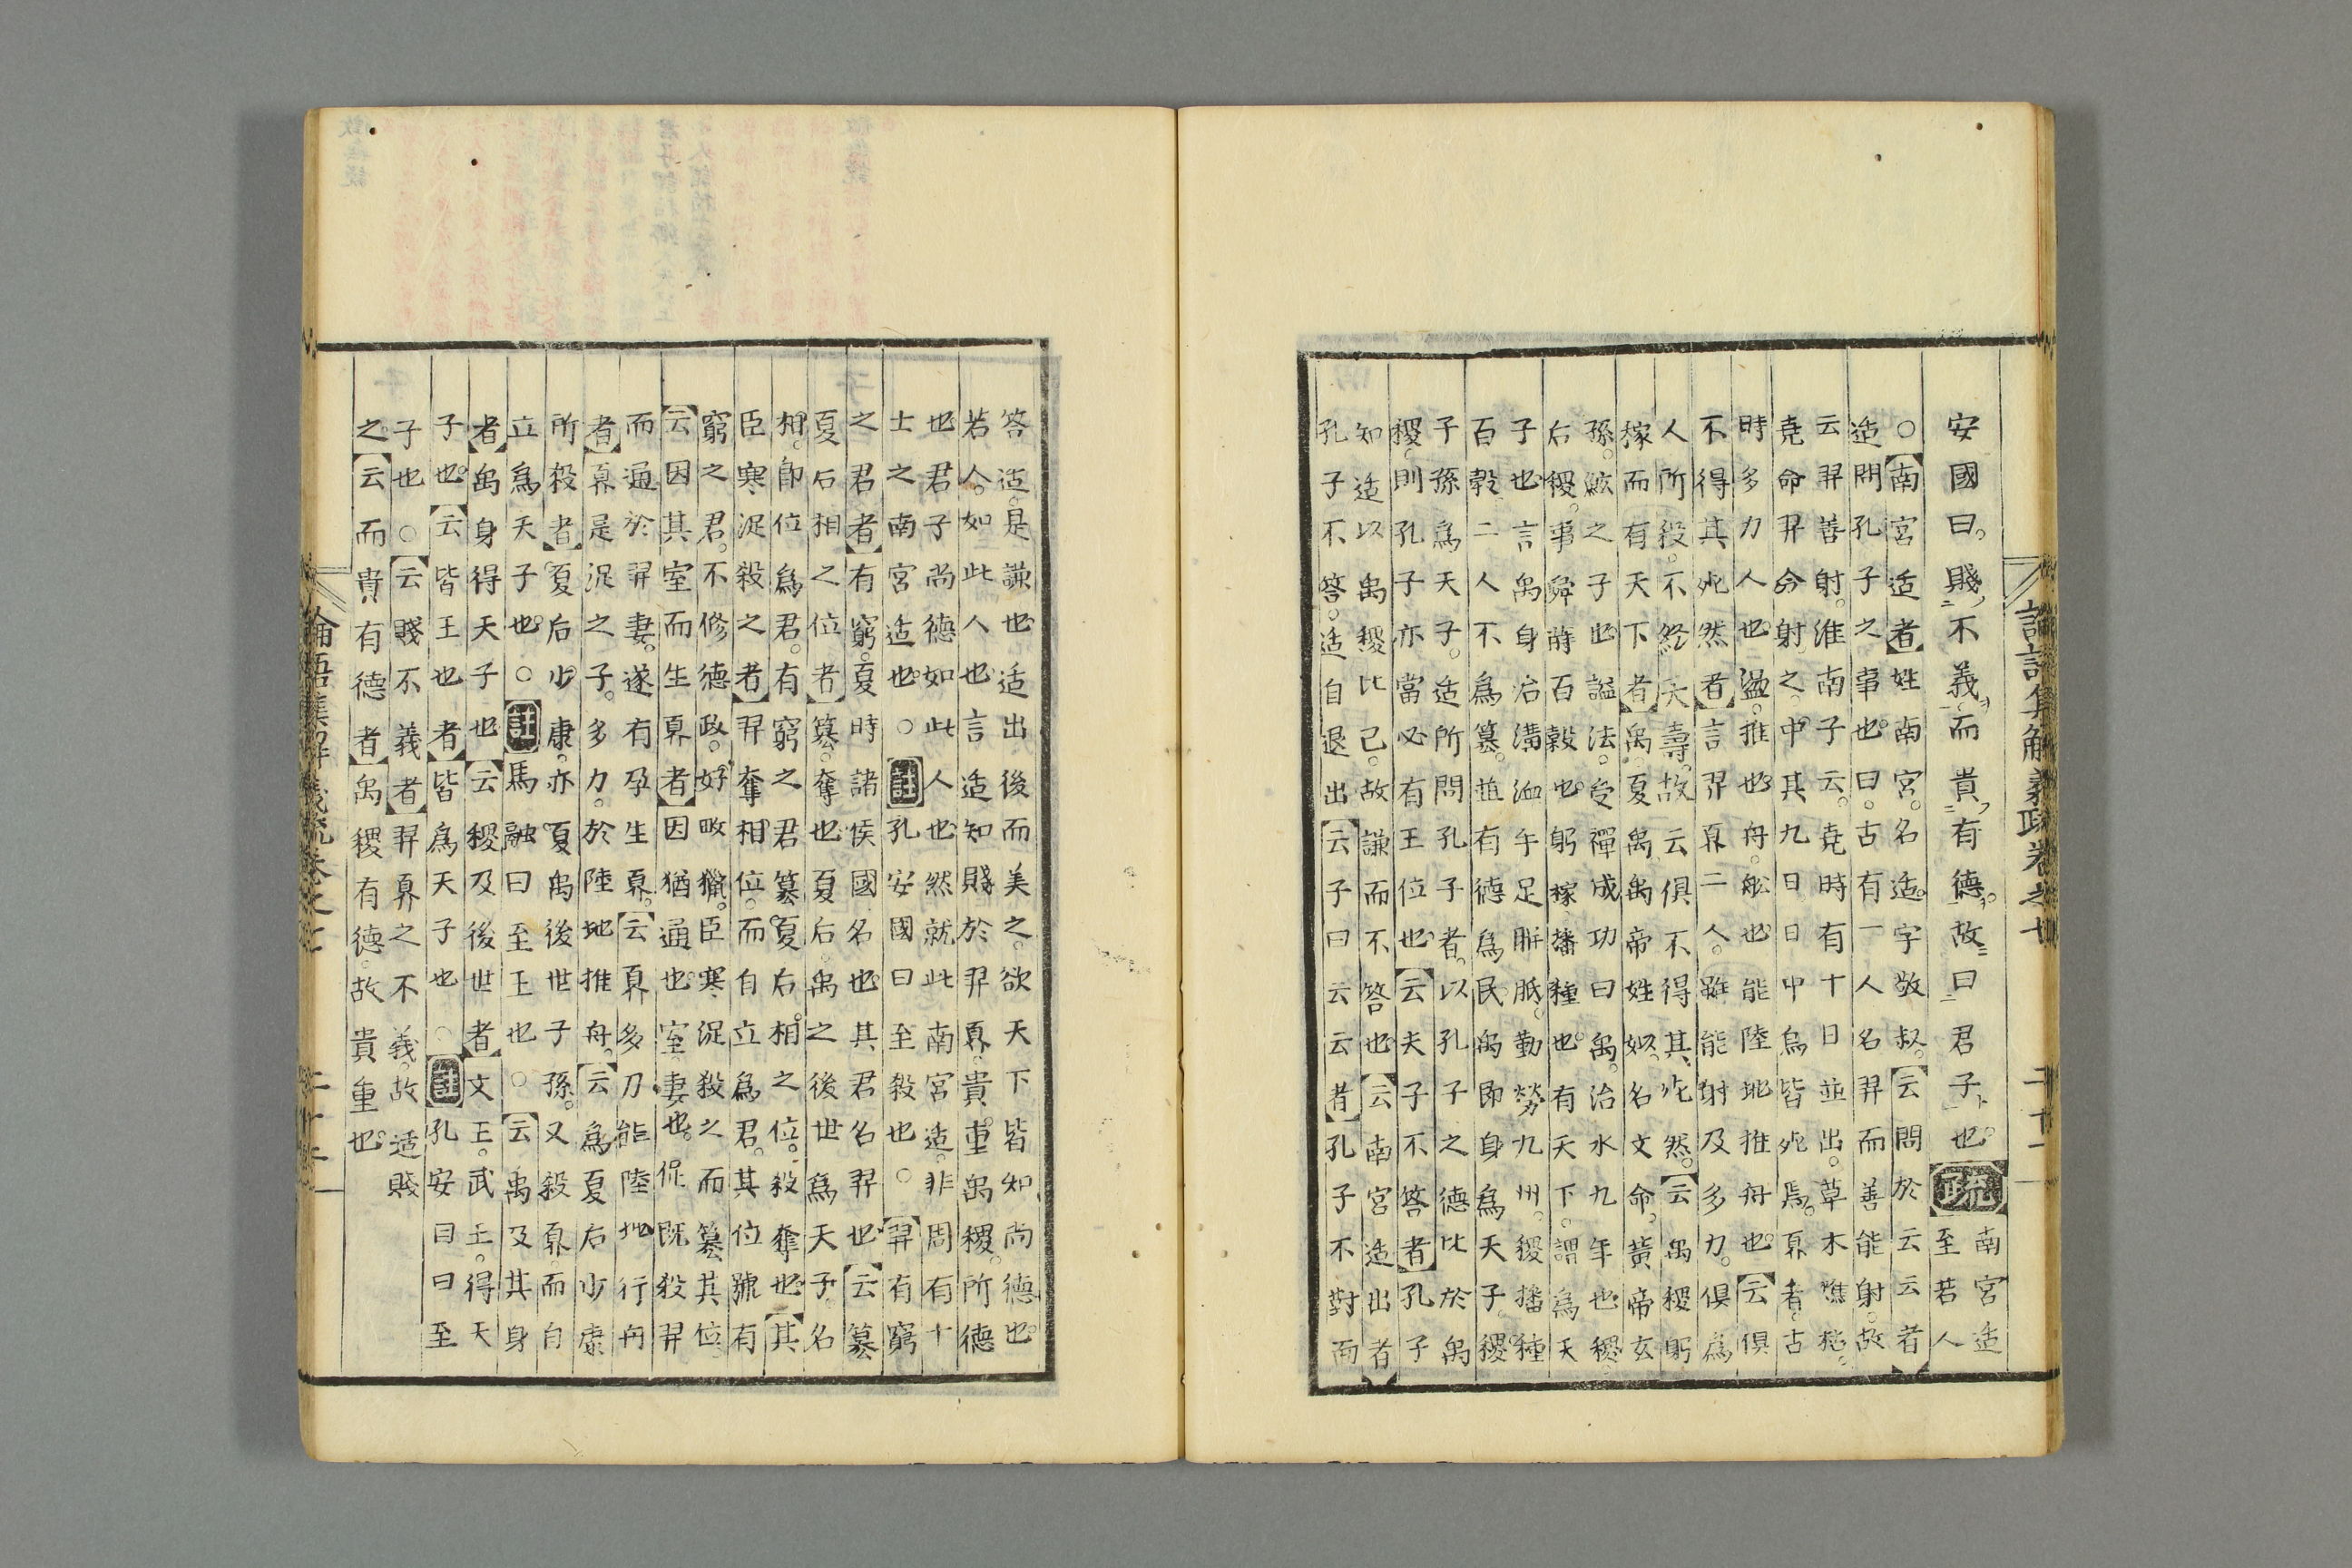 安國曰賤不義而貴有德故曰君子也疏南宮适
至若人
○南宮适者姓南宮名适字敬叔云問於云云者
适問孔子之事也曰古有一人名羿而善能射故
云羿善射淮南子云堯時有十日並出草木燋枯
堯命羿令射之中其九日日中烏皆死焉奡者古
時多力人也盪推也舟舩也能陸地推舟也云俱
不得其死然者言羿奡二人雖能射及多力俱為
人所殺不終天壽故云俱不得其死然云禹稷躬
稼而有天下者禹夏禹禹帝姓姒名文命黃帝玄
孫鯀之子也謚法受禪成功曰禹治水九年也稷
后稷事舜蒔百穀也躬稼播種也有天下謂為天
子也言禹身治溝洫手足胼胝勤勞九州稷播種
百穀二人不為篡並有德為民禹即身為天子稷
子孫為天子适所問孔子者以孔子之德比於禹
稷則孔子亦當必有王位也云夫子不答者孔子
知适以禹稷比己故謙而不答也云南宮适出者
孔子不答适自退出云子曰云云者孔子不對而
答适是謙也适出後而美之欲天下皆知尚德也
若人如此人也言适知賤於羿奡貴重禹稷所德
也君子尚德如此人也然就此南宮适非周有十
士之南宮适也○註孔安國曰至殺也○羿有窮
之君者有窮夏時諸侯國名也其君名羿也云篡
夏后相之位者篡奪也夏后禹之後世為天子名
相即位為君有窮之君篡夏后相之位殺奪也其
臣寒浞殺之者羿奪相位而自立為君其位號有
窮之君不修德政好畋獵臣寒浞殺之而篡其位
云因其室而生奡者因猶通也室妻也浞既殺羿
而通於羿妻遂有孕生奡云奡多力能陸地行舟
者奡是浞之子多力於陸地推舟云為夏后少康
所殺者夏后少康亦夏禹後世子孫又殺奡而自
立為天子也○註馬融曰至王也○云禹及其身
者禹身得天子也云稷及後世者文王武王得天
子也云皆王也者皆為天子也○註孔安曰曰至
子也○云賤不義者羿奡之不義故适賤
之云而貴有德者禹稷有德故貴重也
論語集解義疏卷之七